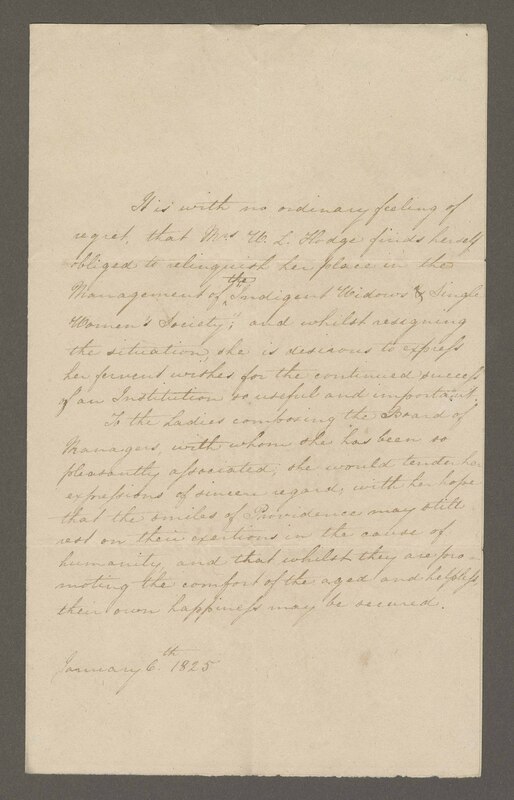 It is with no ordinary feeling of
regret, that Mrs W. L. Hodge finds herself
obliged to relinquish her place in the
Management of the Indigent Widows & Single
Women's Society; and whilst resigning
the situation, she is desirous to express
her fervent wishes for the continued success
of an Institution so useful and important.
To the Ladies composing the Board of
Managers, with whom she has been so
pleasantly associated, she would tender her
expressions of sincere regard, with her hope
that the smiles of Providence may still
rest on their exertions in the cause of
humanity, and that whilst they are pro-
moting the comfort of the aged and helpless
their own happiness may be secured.
January 6th 1825